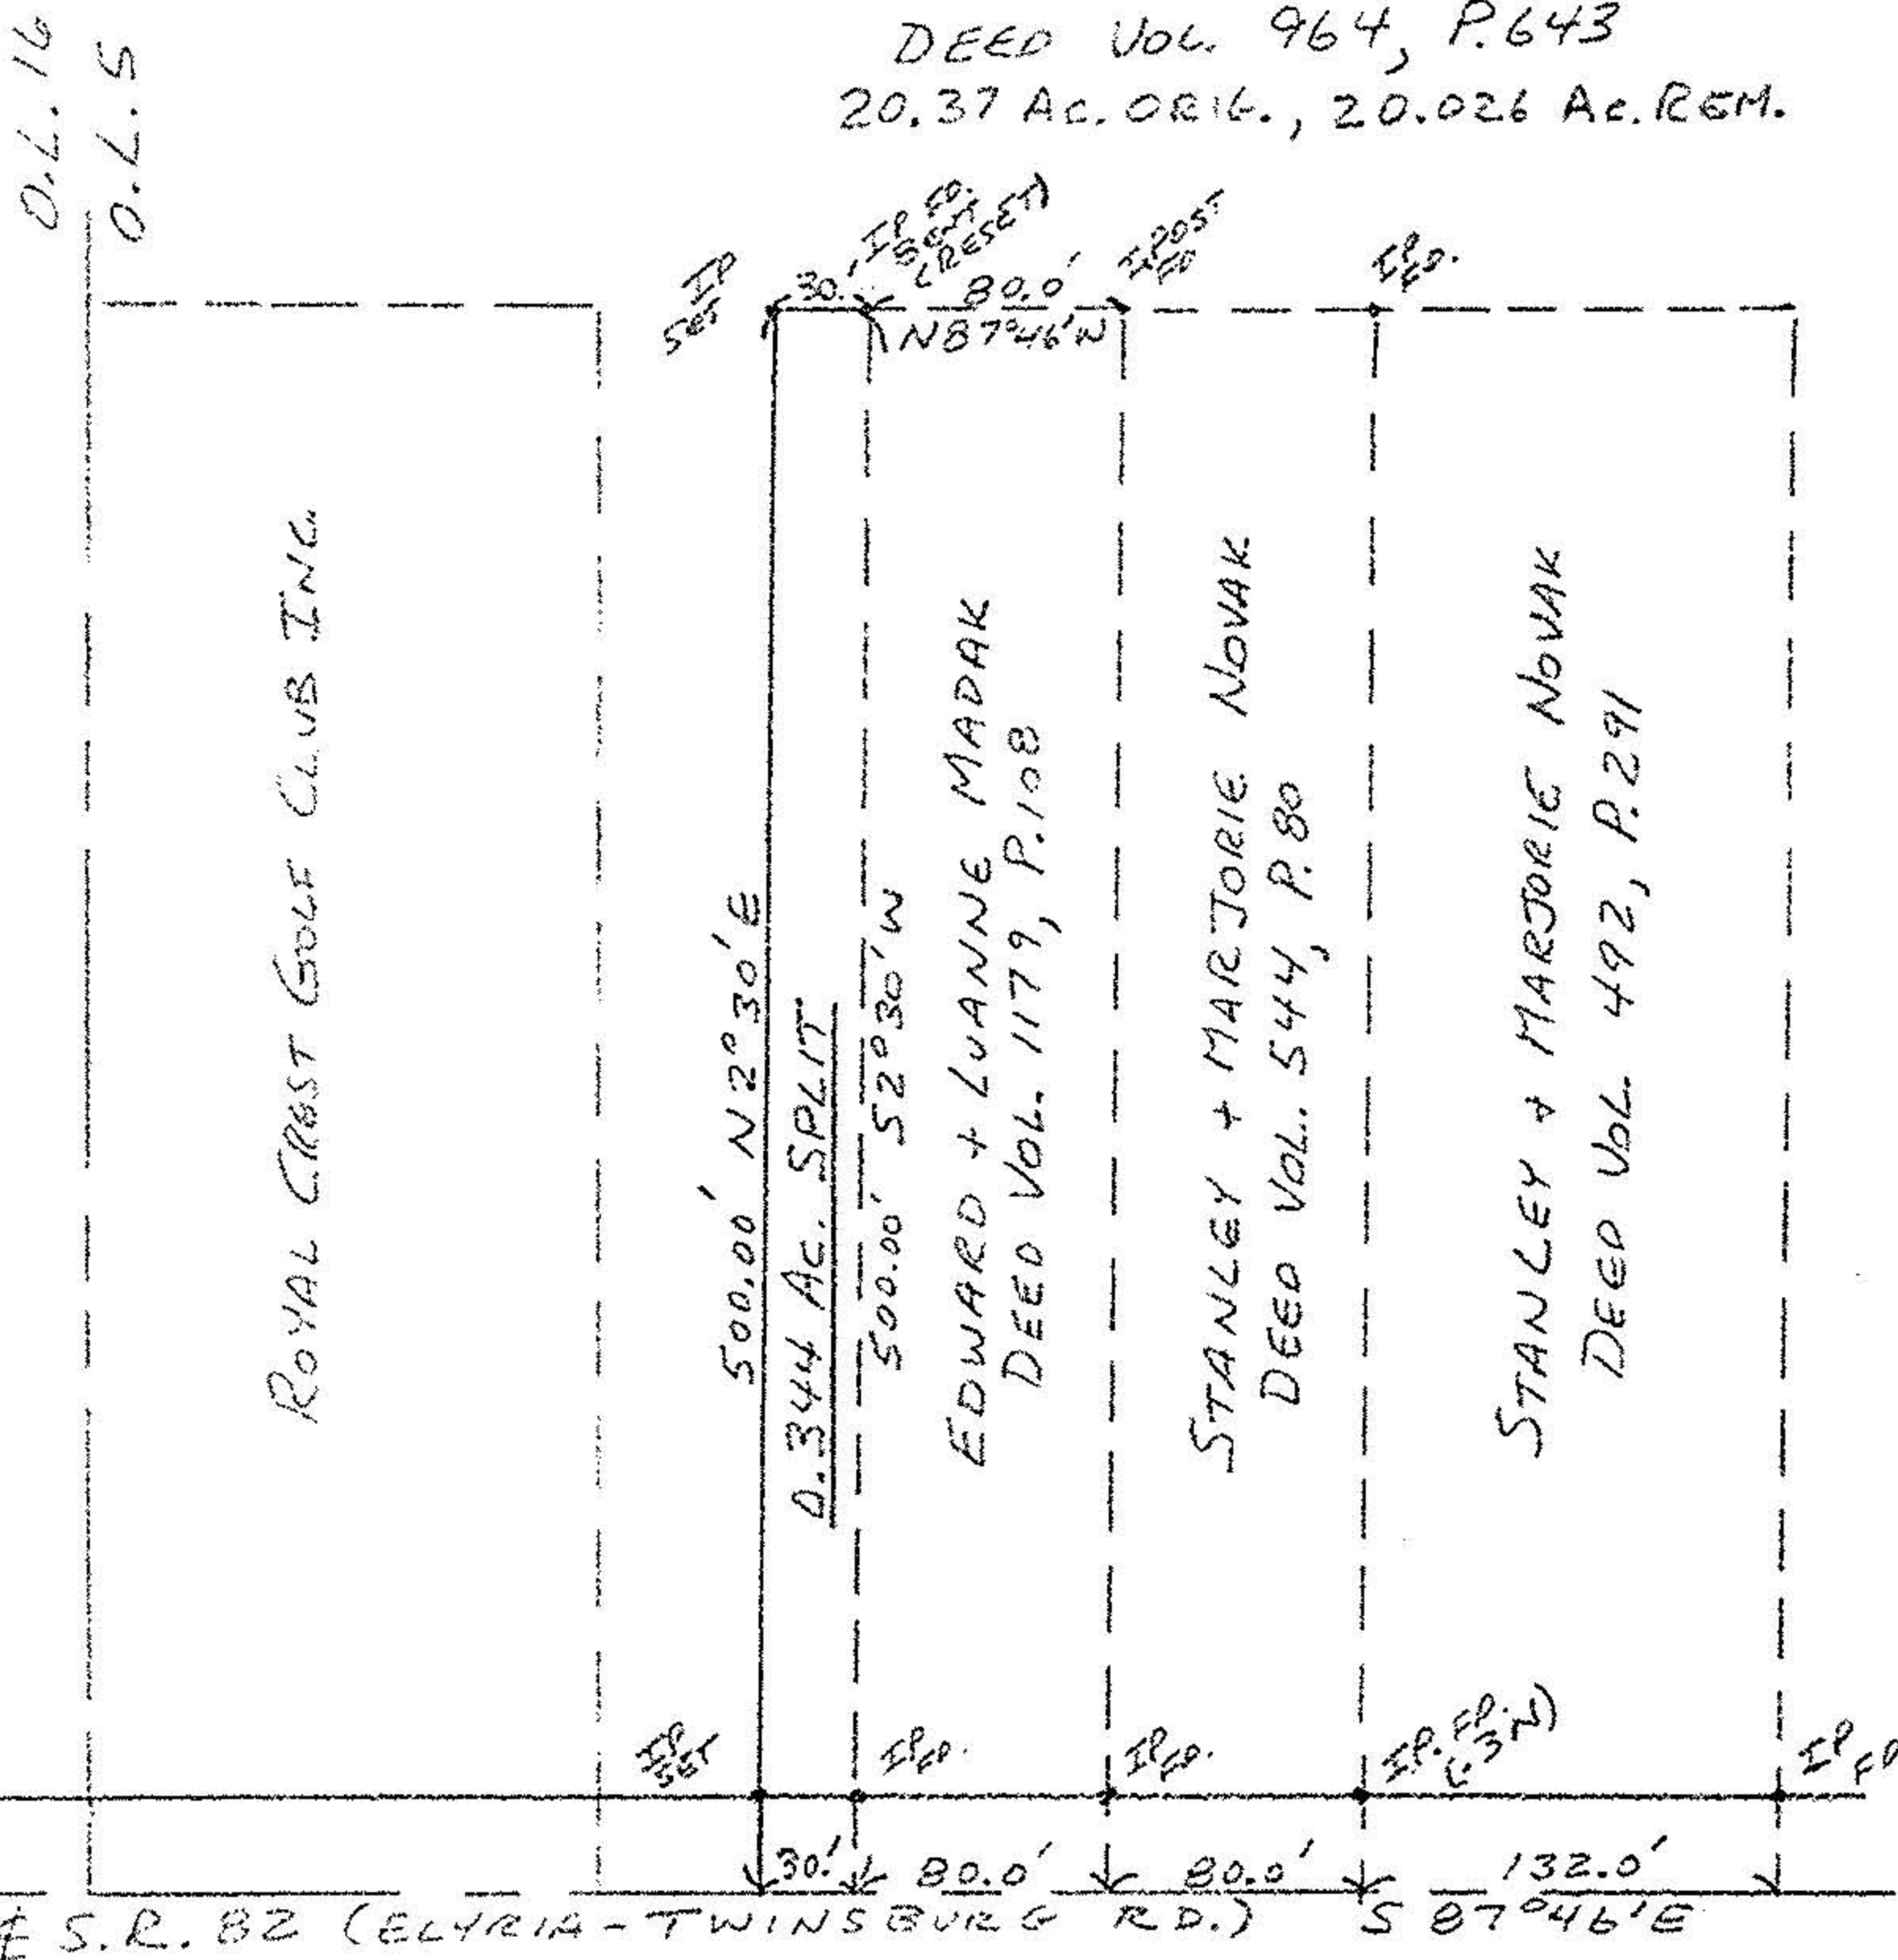 O.L. 16
O.L. 5
DEED VOL. 964, P.643
20.37 AC. ORIG., 20.026 AC. REM.
IP
SET
30.'
IP FD.
BENT
(RESET)
80.0'
N87°46'W
POST
FD
IP
FD.
ROYAL CREST GOLF CLUB INC.
500.00' N2°30'E
0.344 AC. SPLIT
500.00' S2°30'W
EDWARD + LUANNE MADAK
DEED VOL. 1179, P.108
STANLEY + MARJORIE NOVAK
DEED VOL. 544, P.80
STANLEY + MARJORIE NOVAK
DEED VOL. 492, P.291
IP
SET
IP FD.
IP FD.
IP. FD.
(.3 N)
IP FD
30.'
80.0'
80.0'
132.0'
℄ S.R. 82 (ELYRIA-TWINSBURG RD.) S 87°46'E